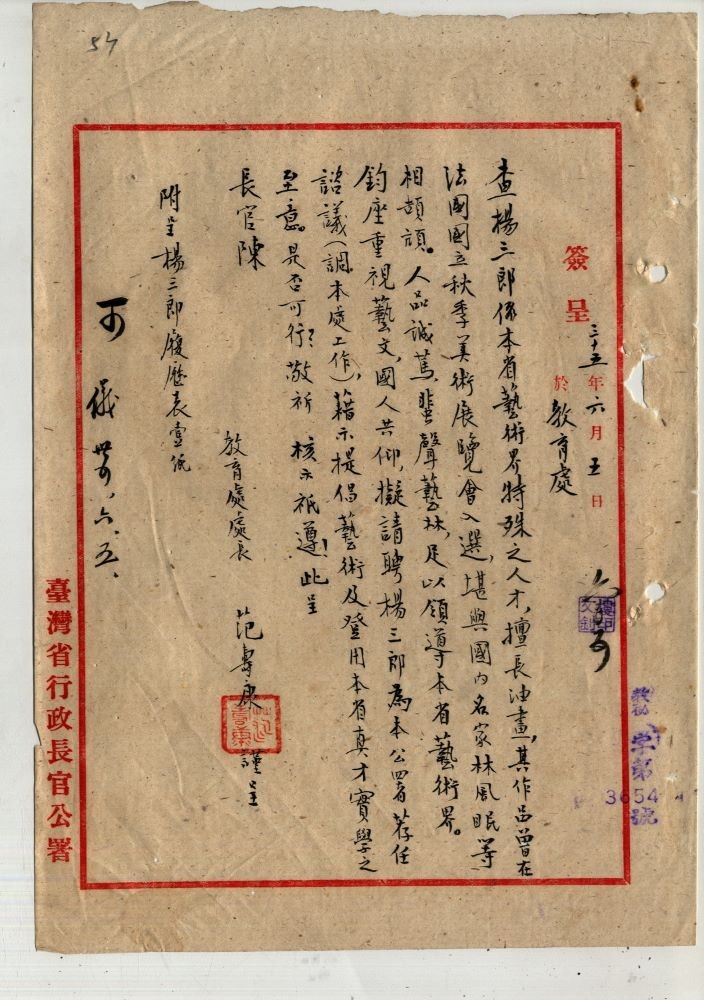 54
簽呈 三十五年六月五日
於教育處
查楊三郎係本省藝術界特殊之人才,擅長油畫,其作品曾在
法國國立秋季美術展覽會入選,堪與國內名家林風眠等
相頡頏。人品誠篤,蜚聲藝林,足以領導本省藝術界。
鈞座重視藝文,國人共仰,擬請聘楊三郎為本公署荐任
諮議(調本處工作),藉示提倡藝術及登用本省真才實學之
至意。是否可行?敬祈 核示祇遵!此呈
長官陳
教育處處長 范壽康 謹呈
附呈楊三郎履歷表壹紙
可 儀 卅五、六、五、
臺灣省行政長官公署
字第
3654
號